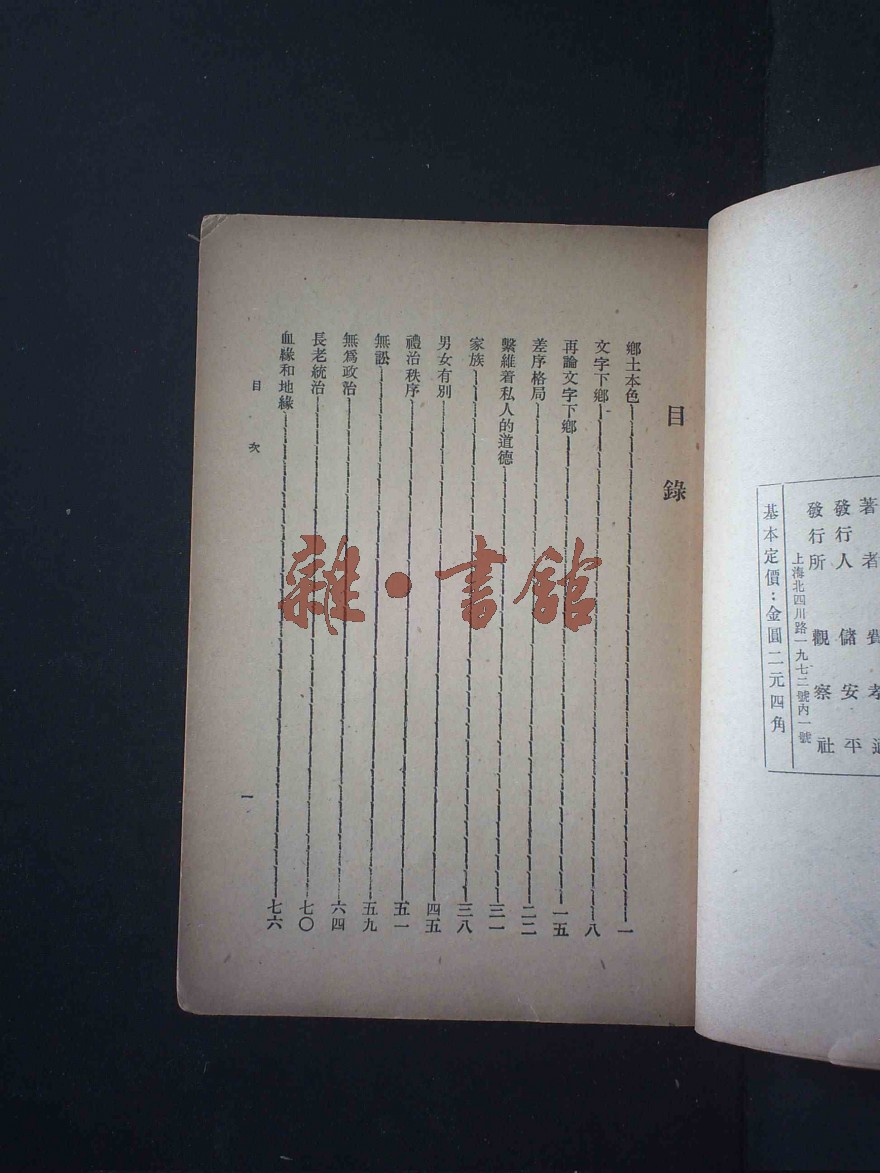 著者 費孝通
發行人 儲安平
發行所 觀察社
上海北四川路一九七二號內一號
基本定價：金圓二元四角
目錄
鄉土本色 一
文字下鄉 八
再論文字下鄉 一五
差序格局 二二
繫維着私人的道德 三一
家族 三八
男女有別 四五
禮治秩序 五一
無訟 五九
無爲政治 六四
長老統治 七〇
血緣和地緣 七六
目次
一
雜·書館